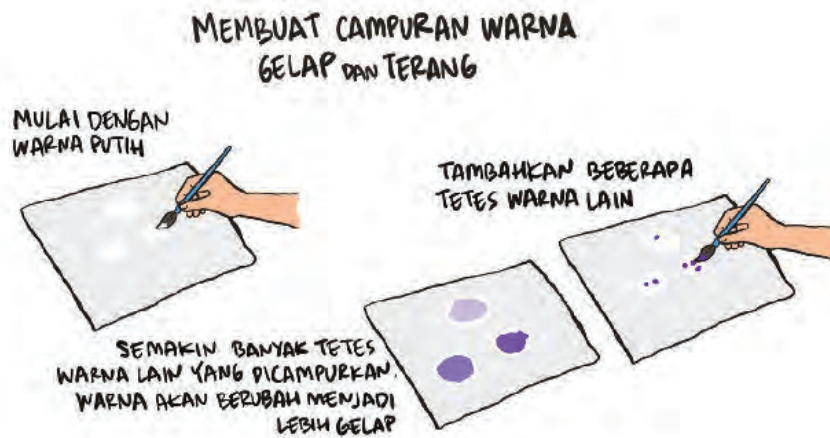 MEMBUAT CAMPURAN WARNA
GELAP DAN TERANG
MULAI DENGAN
WARNA PUTIH
TAMBAHKAN BEBERAPA
TETES WARNA LAIN
SEMAKIN BANYAK TETES
WARNA LAIN YANG DICAMPURKAN,
WARNA AKAN BERUBAH MENJADI
LEBIH GELAP